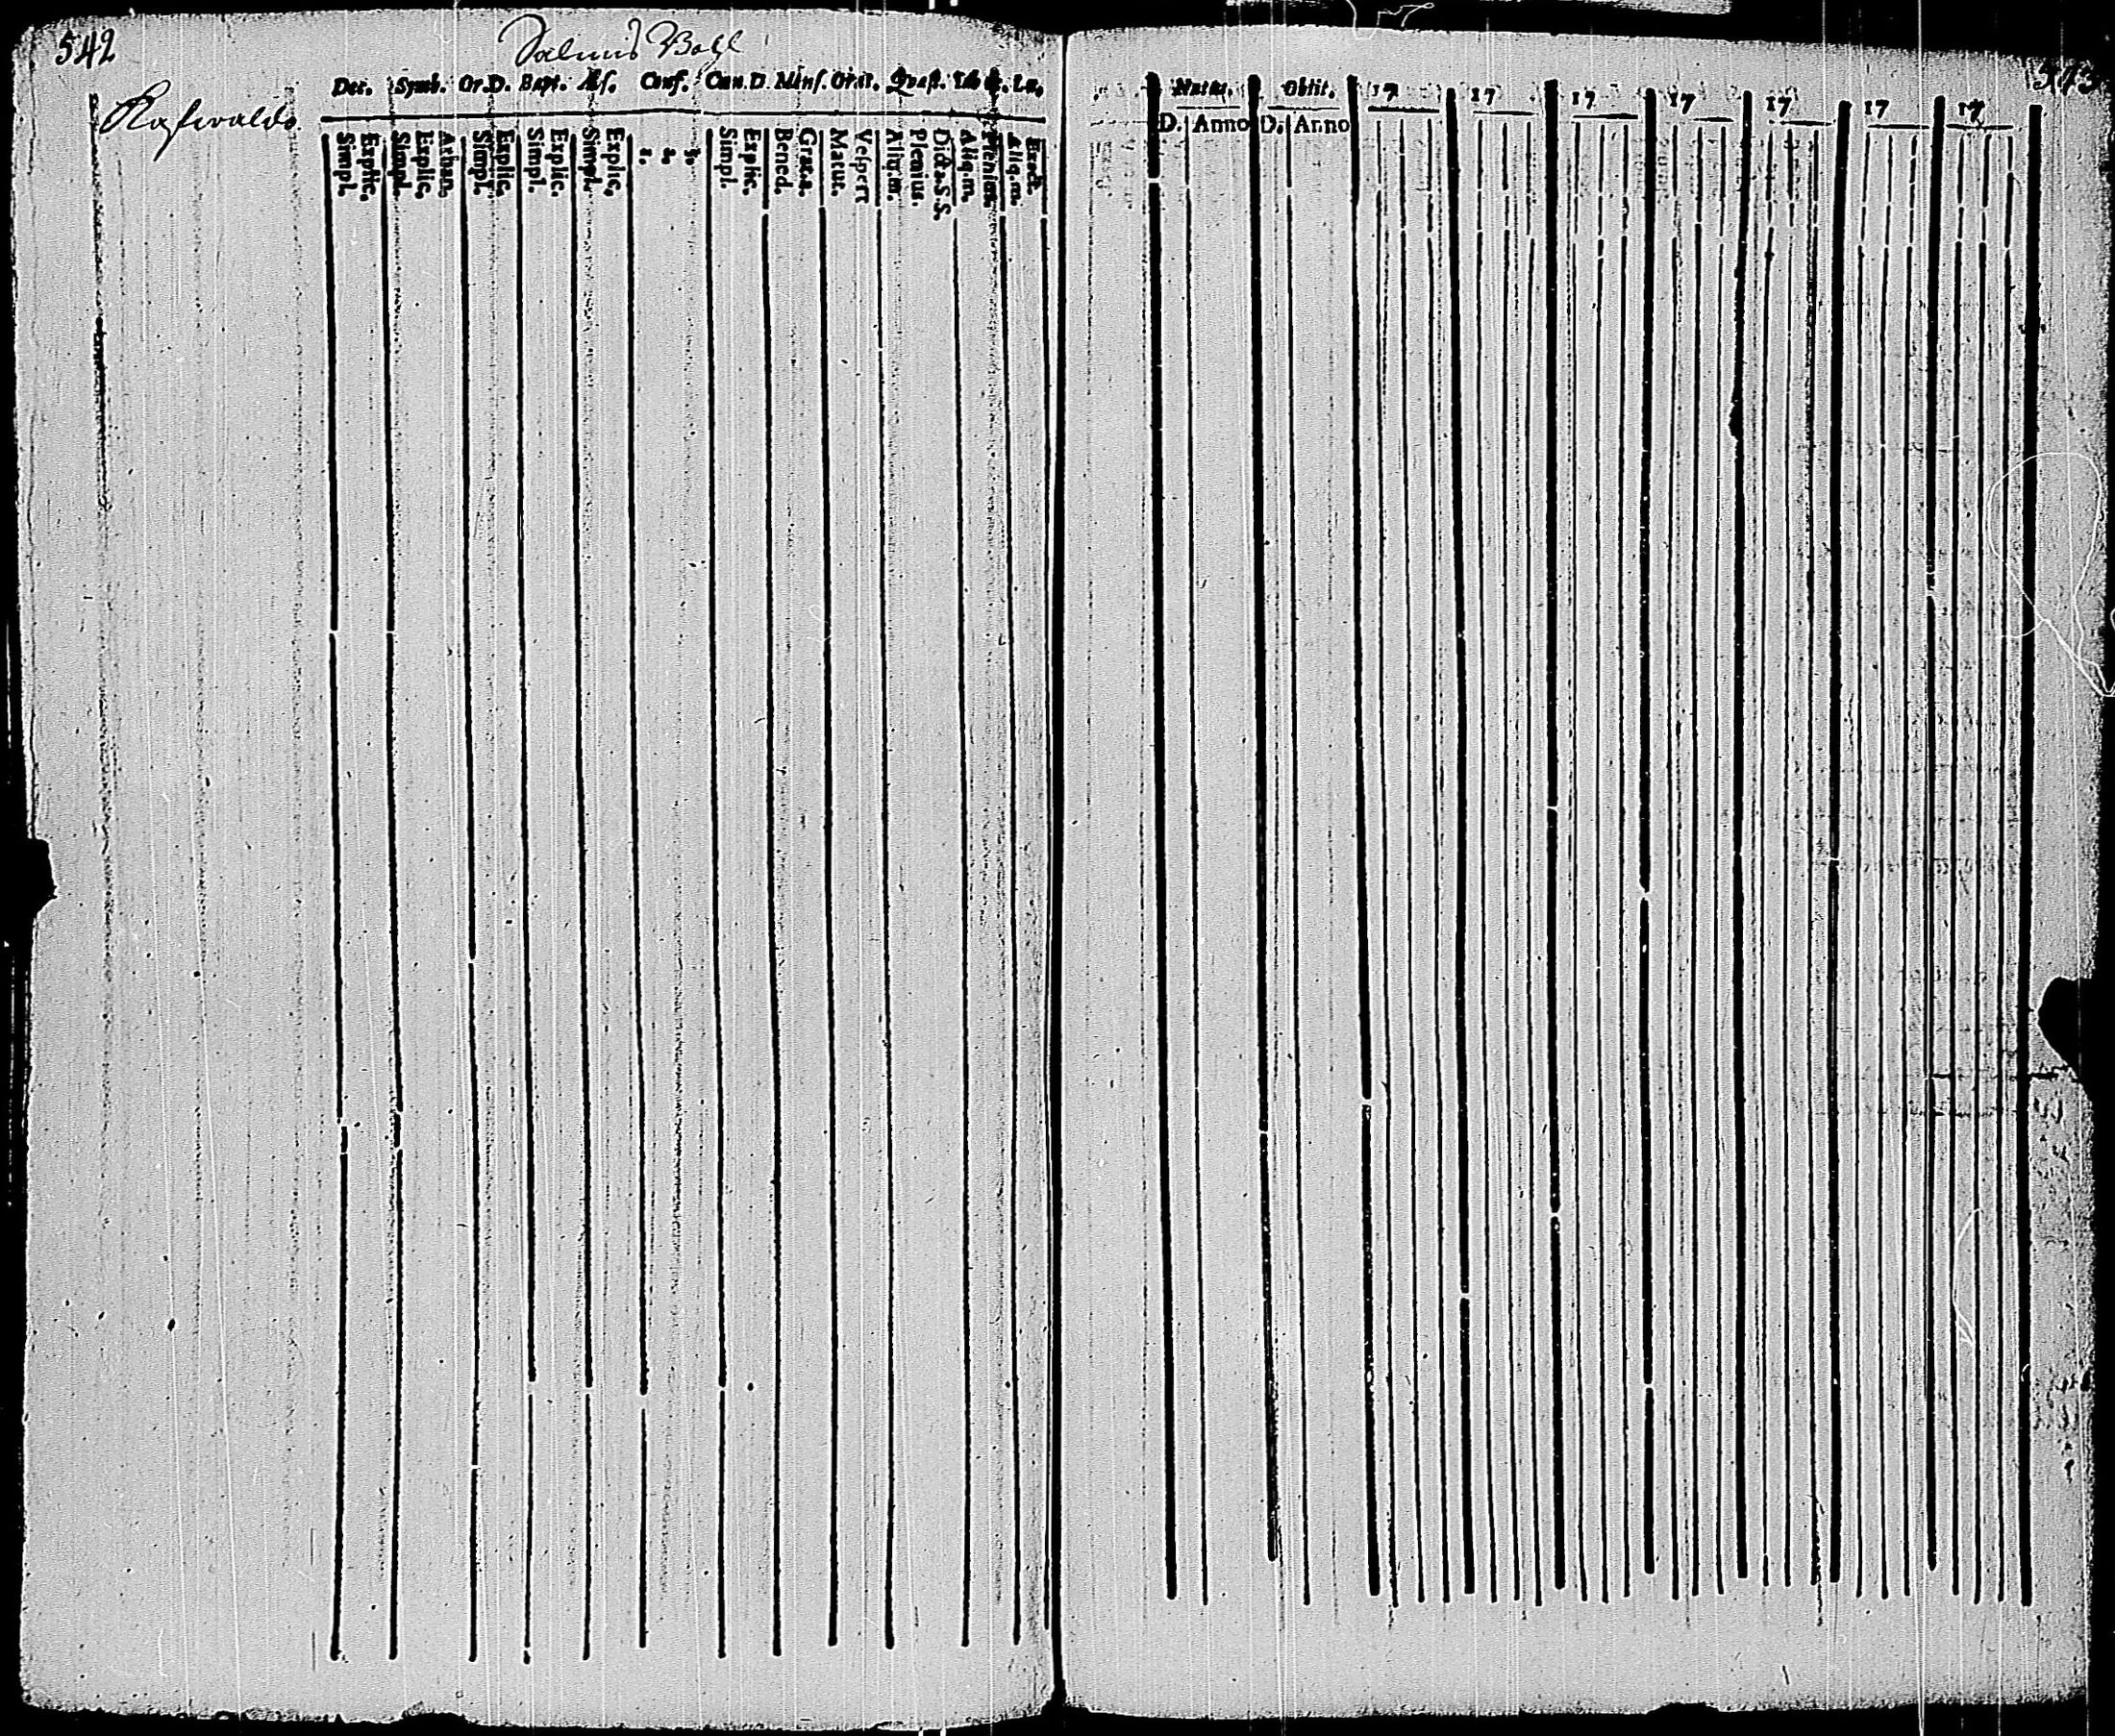 542
Dec. Symb. Or.D. Bapt. Abs. Conf. Cœn.D. Mens. Orat. Quæst. Lu.
Simpl. Explic. Simpl. Explic. Athan. Simpl. Explic. Simpl. Explic. Simpl. Explic. 1. 2. 3. Simpl. Explic. Bened. Grat.a. Matut. Vespert Aliq.m. Plenius. Dicta S.S. Aliq.m. Plenius. Aliq.m. Exact.
543
Natus. Obiit. 17 17 17 17 17 17 17
D. Anno D. Anno